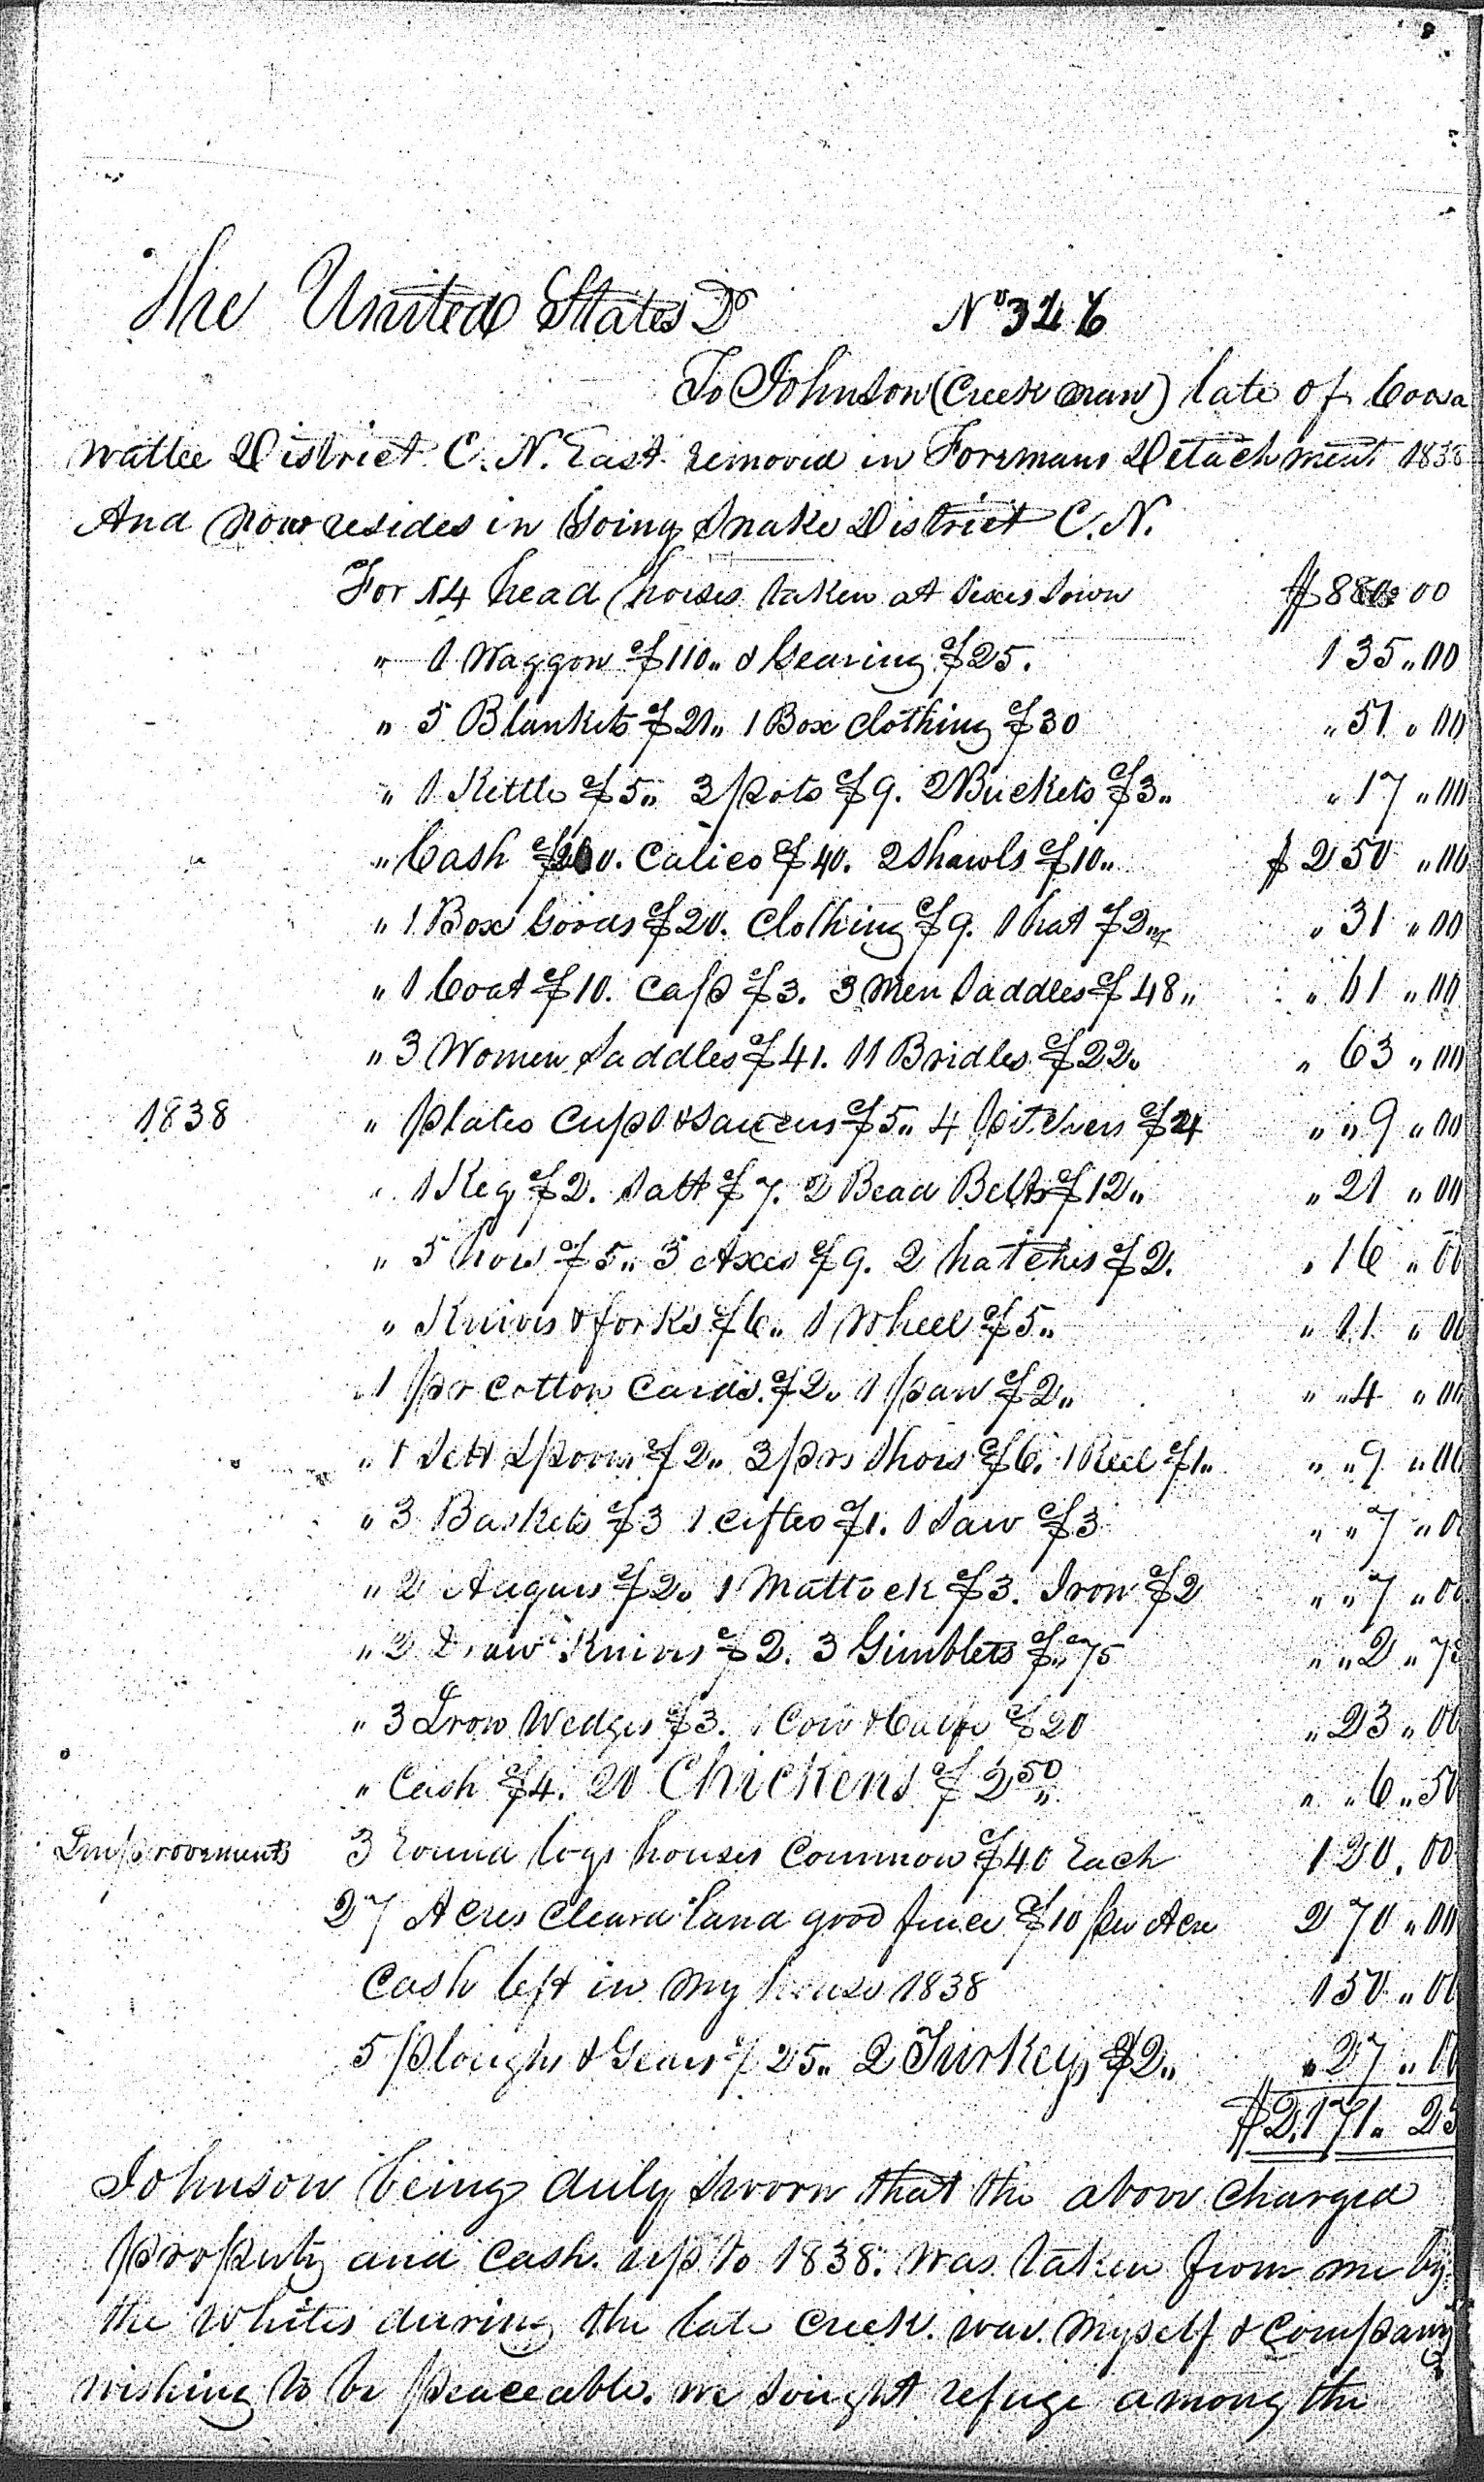 The United States Dr No 326
To Johnson (Creek man) late of Coosa
wattee District C. N. East removed in Foremans Detachment 1838
And now resides in Going Snake District C. N.
For 14 head horses taken at Sixes Town $880.00
" 1 Waggon $110" & Gearing $25. 135"00
" 5 Blankets $21" 1 Box Clothing $30 "51"00
" 1 Kettle $5" 3 pots $9. 2 Buckets $3" "17"00
" Cash $200. Calico $40. 2 Shawls $10" $250"00
" 1 Box Goods $20. Clothing $9. 1 hat $2" "31"00
" 1 Coat $10. Cap $3. 3 Men Saddles $48" "61"00
" 3 Women Saddles $41. 11 Bridles $22" "63"00
1838 " plates Cups & Saucers $5" 4 pitchers $4 ""9"00
" 1 Keg $2. Salt $7. 2 Bead Belts $12" "21"00
" 5 hoes $5" 3 Axes $9. 2 hatches $2. "16"00
" Knives & forks $6" 1 Wheel $5" "11"00
" 1 pr Cotton Cards $2" 1 pan $2" ""4"00
" 1 Sett Spoons $2" 3 prs Shoes $6. 1 Reel $1" ""9"00
" 3 Baskets $3 1 cifter $1. 1 Saw $3 ""7"00
" 2 Augurs $2" 1 Mattock $3. Iron $2 ""7"00
" 2 Draw Knives $2. 3 Gimblets $"75 ""2"75
" 3 Iron Wedges $3. 1 Cow & Calfe $20 "23"00
" Cash $4. 20 Chickens $2 50 ""6"50
Improvements 3 round logs houses common $40 Each 120.00
27 Acres cleard land good fence $10 per Acre 270"00
Cash left in my house 1838 150"00
5 ploughs & Gears $25" 2 Turkeys $2" "27"00
$2,171"25
Johnson being duly sworn that the above charged
property and cash. up to 1838. was taken from me by
the whites during the late creek. war. myself & company
wishing to be peaceable. we sought refuge among the